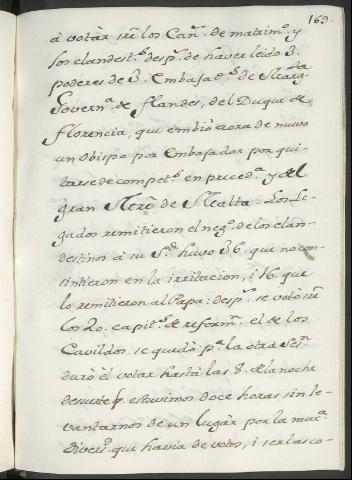 169.
à votàr sre los Can.s de matrim.o y
los clandest.s desp.s de haver leido 3.
poderes de 3. Embajad.s de
Govern.a de Flandes, del Duque de
Florencia, que embió aora de nuevo
un obispo por Embajador por qui-
tarse de compet.s en preced.a y del
gran de Malta. Los Le-
gados remitieron el neg.o de los clan-
destinos à su S.d huvo 36. que no con-
sintieron en la irritacion, i 16. que
lo remitieron al Papa: desp.s se votò sre
los 20. capit.s de reform.n el de los
Cavildos se quedò p.a la otra Ses.n
durò èl votar hasta las 8. de la noche
desuerte q estuvimos doce horas sin le-
vantarnos de un lugàr por la muc.a
divers.d que havia de votos, i ser las co-